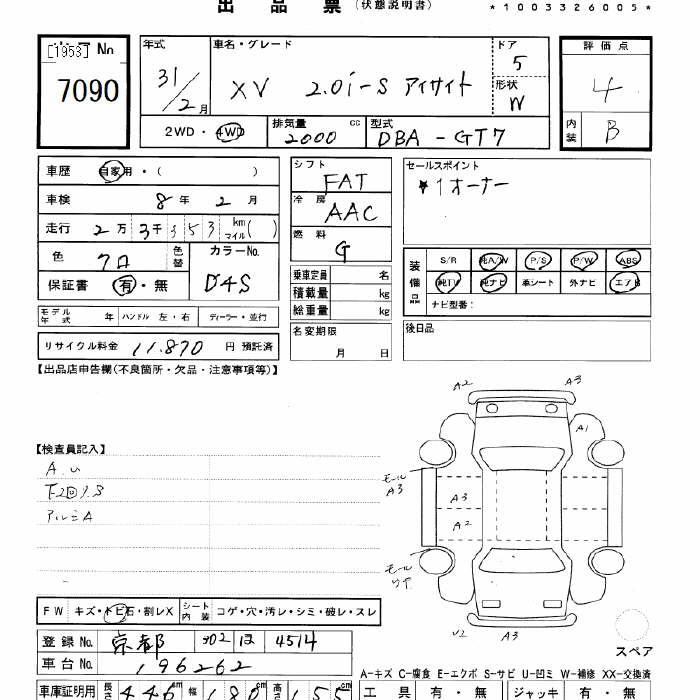 出品票 (状態説明書) *1003326005*
[1953] No
7090
年式 31/2月
車名・グレード XV 2.0i-S アイサイト
ドア 5
形状 W
評価点 4
内装 B
2WD・4WD 排気量 2000 cc 型式 DBA-GT7
車歴 自家用・( )
車検 8年 2月
走行 2万 3千 353 km マイル( )
色 クロ 色替 カラーNo. D4S
保証書 有・無
モデル年式 年 ハンドル 左・右 ディーラー・並行
リサイクル料金 11,870 円 預託済
シフト FAT
冷房 AAC
燃料 G
乗車定員 名
積載量 kg
総重量 kg
名変期限
月 日
セールスポイント
★1オーナー
装備品 S/R 純A/W P/S P/W ABS
純TV 純ナビ 革シート 外ナビ エアB
ナビ型番:
後日品
【出品店申告欄(不良箇所・欠品・注意事項等)】
【検査員記入】
A.U
アルミA
A2 A3
A1
モール A3
A3
A2
モール
U2 A3
スペア
FW キズ・トビ石・割レX シート内装 コゲ・穴・汚レ・シミ・破レ・スレ
登録No. 京都 302 ほ 4514
車台No. 196262
A-キズ C-腐食 E-エクボ S-サビ U-凹ミ W-補修 XX-交換済
車庫証明用 長さ 446 cm 幅 180 cm 高さ 155 cm
工具 有・無 ジャッキ 有・無